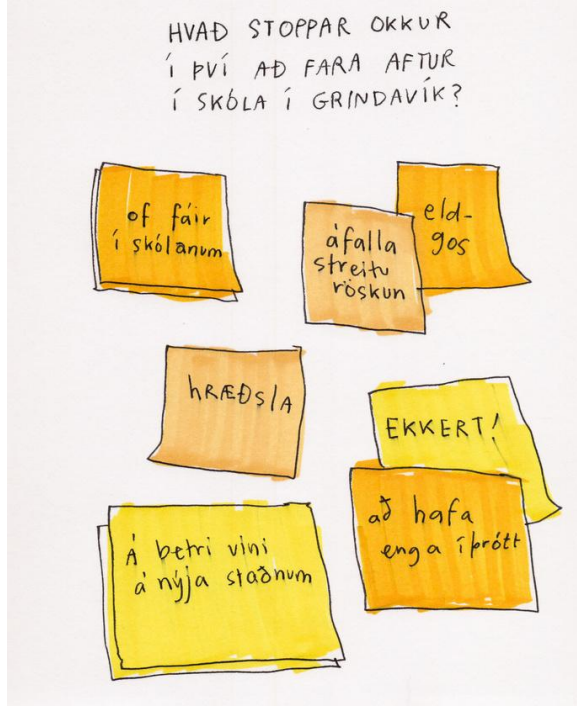 HVAÐ STOPPAR OKKUR
Í ÞVÍ AÐ FARA AFTUR
Í SKÓLA Í GRINDAVÍK?
of fáir
í skólanum
áfalla
streitu
röskun
eld-
gos
hRÆÐslA
EKKERT!
að hafa
enga íþrótt
Á betri vini
á nýja staðnum